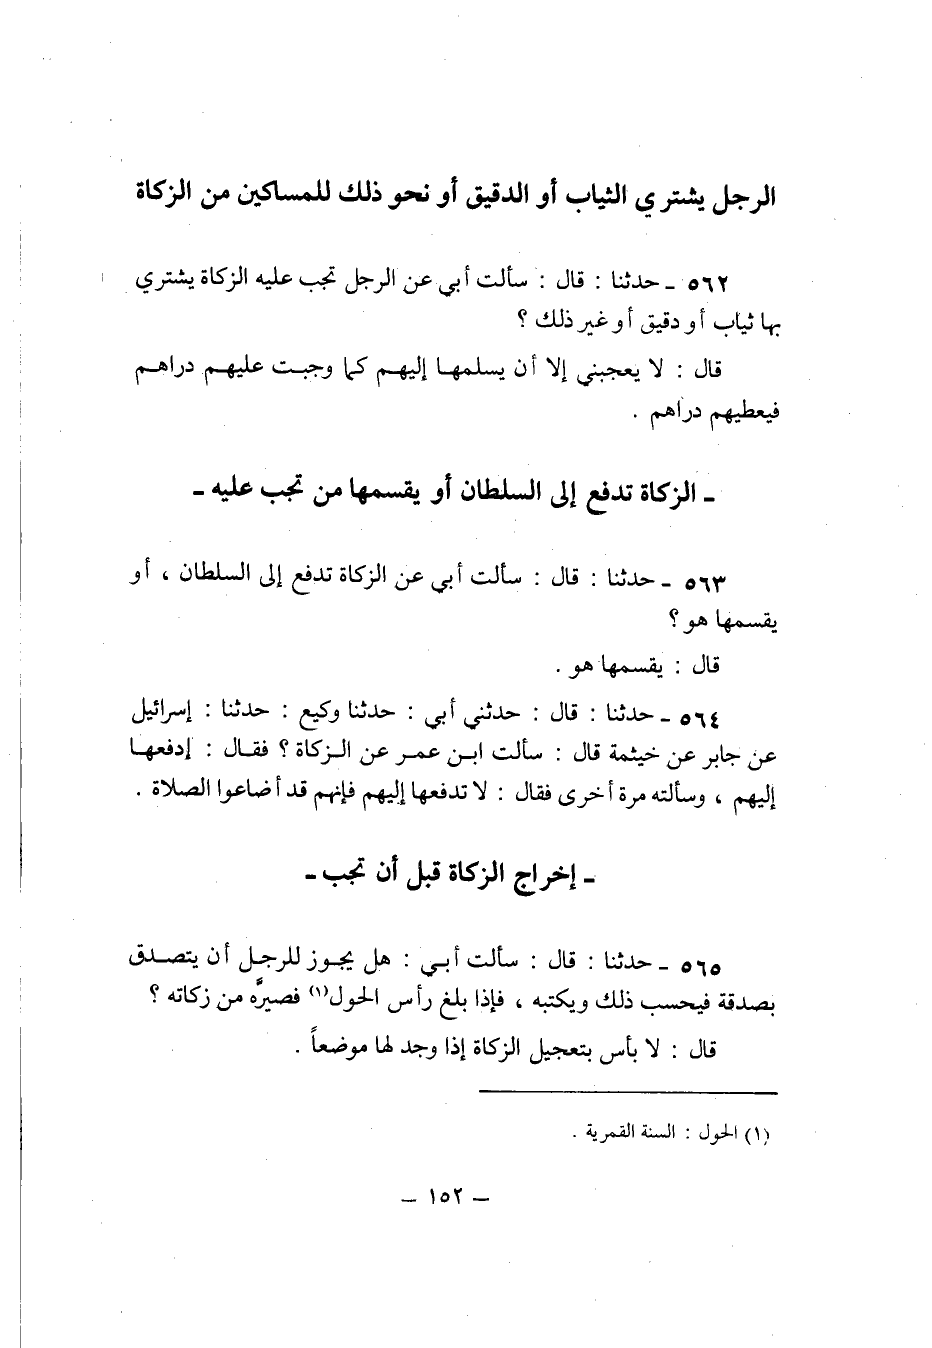 الرجل يشتري الثياب أو الدقيق أو نحو ذلك للمساكين من الزكاة
٥٦٢ ـ حدثنا : قال : سألت أبي عن الرجل تجب عليه الزكاة يشتري
بها ثياب أو دقيق أو غير ذلك ؟
قال : لا يعجبني إلا أن يسلمها إليهم كما وجبت عليهم دراهم
فيعطيهم دراهم .
ـ الزكاة تدفع إلى السلطان أو يقسمها من تجب عليه ـ
٥٦٣ ـ حدثنا : قال : سألت أبي عن الزكاة تدفع إلى السلطان ، أو
يقسمها هو ؟
قال : يقسمها هو .
٥٦٤ ـ حدثنا : قال : حدثني أبي : حدثنا وكيع : حدثنا : إسرائيل
عن جابر عن خيثمة قال : سألت ابن عمر عن الزكاة ؟ فقال : إدفعها
إليهم ، وسألته مرة أخرى فقال : لا تدفعها إليهم فإنهم قد أضاعوا الصلاة .
ـ إخراج الزكاة قبل أن تجب ـ
٥٦٥ ـ حدثنا : قال : سألت أبي : هل يجوز للرجل أن يتصدق
بصدقة فيحسب ذلك ويكتبه ، فإذا بلغ رأس الحول(١) فصيرَّه من زكاته ؟
قال : لا بأس بتعجيل الزكاة إذا وجد لها موضعاً .
(١) الحول : السنة القمرية .
ـ ١٥٢ ـ